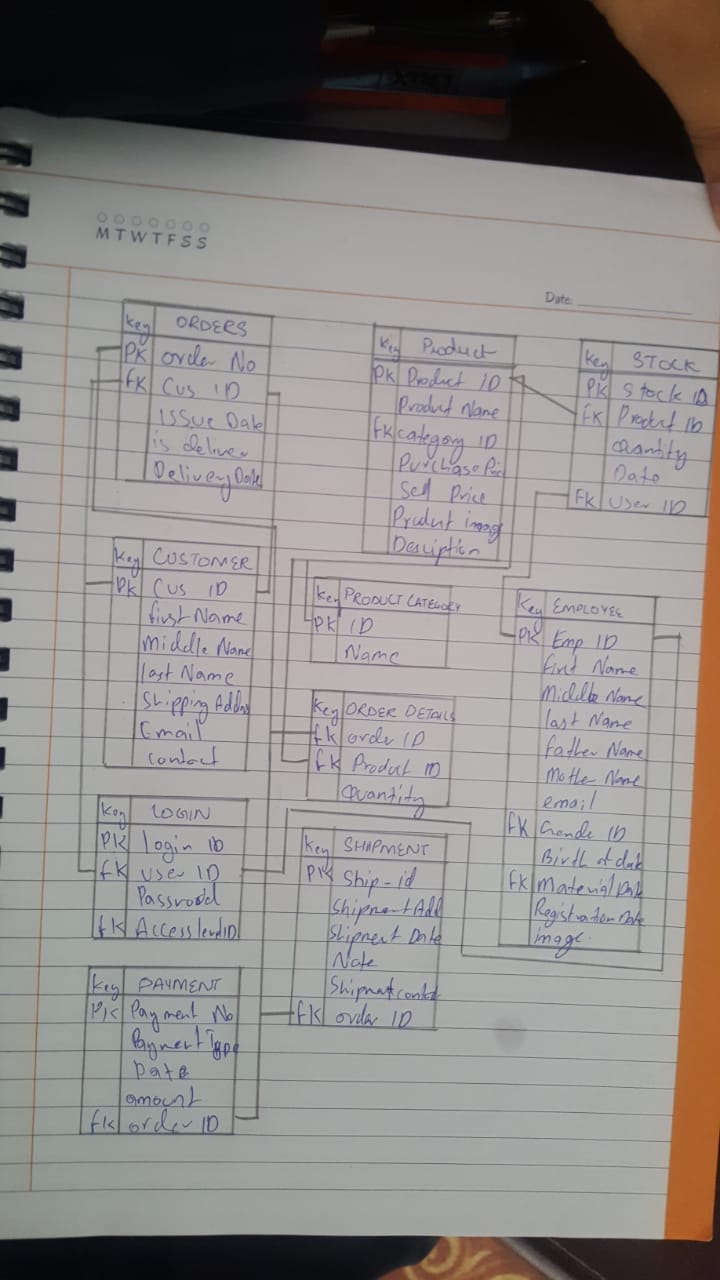 MTWTFSS
Date:
Key ORDERS
PK order No
FK Cus ID
Issue Date
is deliver
Delivery Date
Key Product
PK Product ID
Product Name
FK category ID
Purchase
Sell Price
Product imag
Desciption
Key STOCK
PK Stock ID
FK Product ID
Quantity
Date
FK User ID
Key CUSTOMER
PK Cus ID
first Name
Middle Name
last Name
Shipping
Email
Contact
Key PRODUCT CATEGORY
PK ID
Name
Key EMPLOYEE
PK Emp ID
First Name
Middle Name
last Name
Father Name
Mother Name
email
FK Gende ID
Birth of date
FK Material
Registration Date
image.
Key ORDER DETAILS
FK order ID
FK Product ID
Quantity
Key LOGIN
PK login ID
FK user ID
Password
FK Access level ID
Key SHIPMENT
PK Ship-id
Shipment Add
Shipment Date
Note
Shipment
FK order ID
Key PAYMENT
PK Payment No
Payment Type
Date
amount
FK order ID